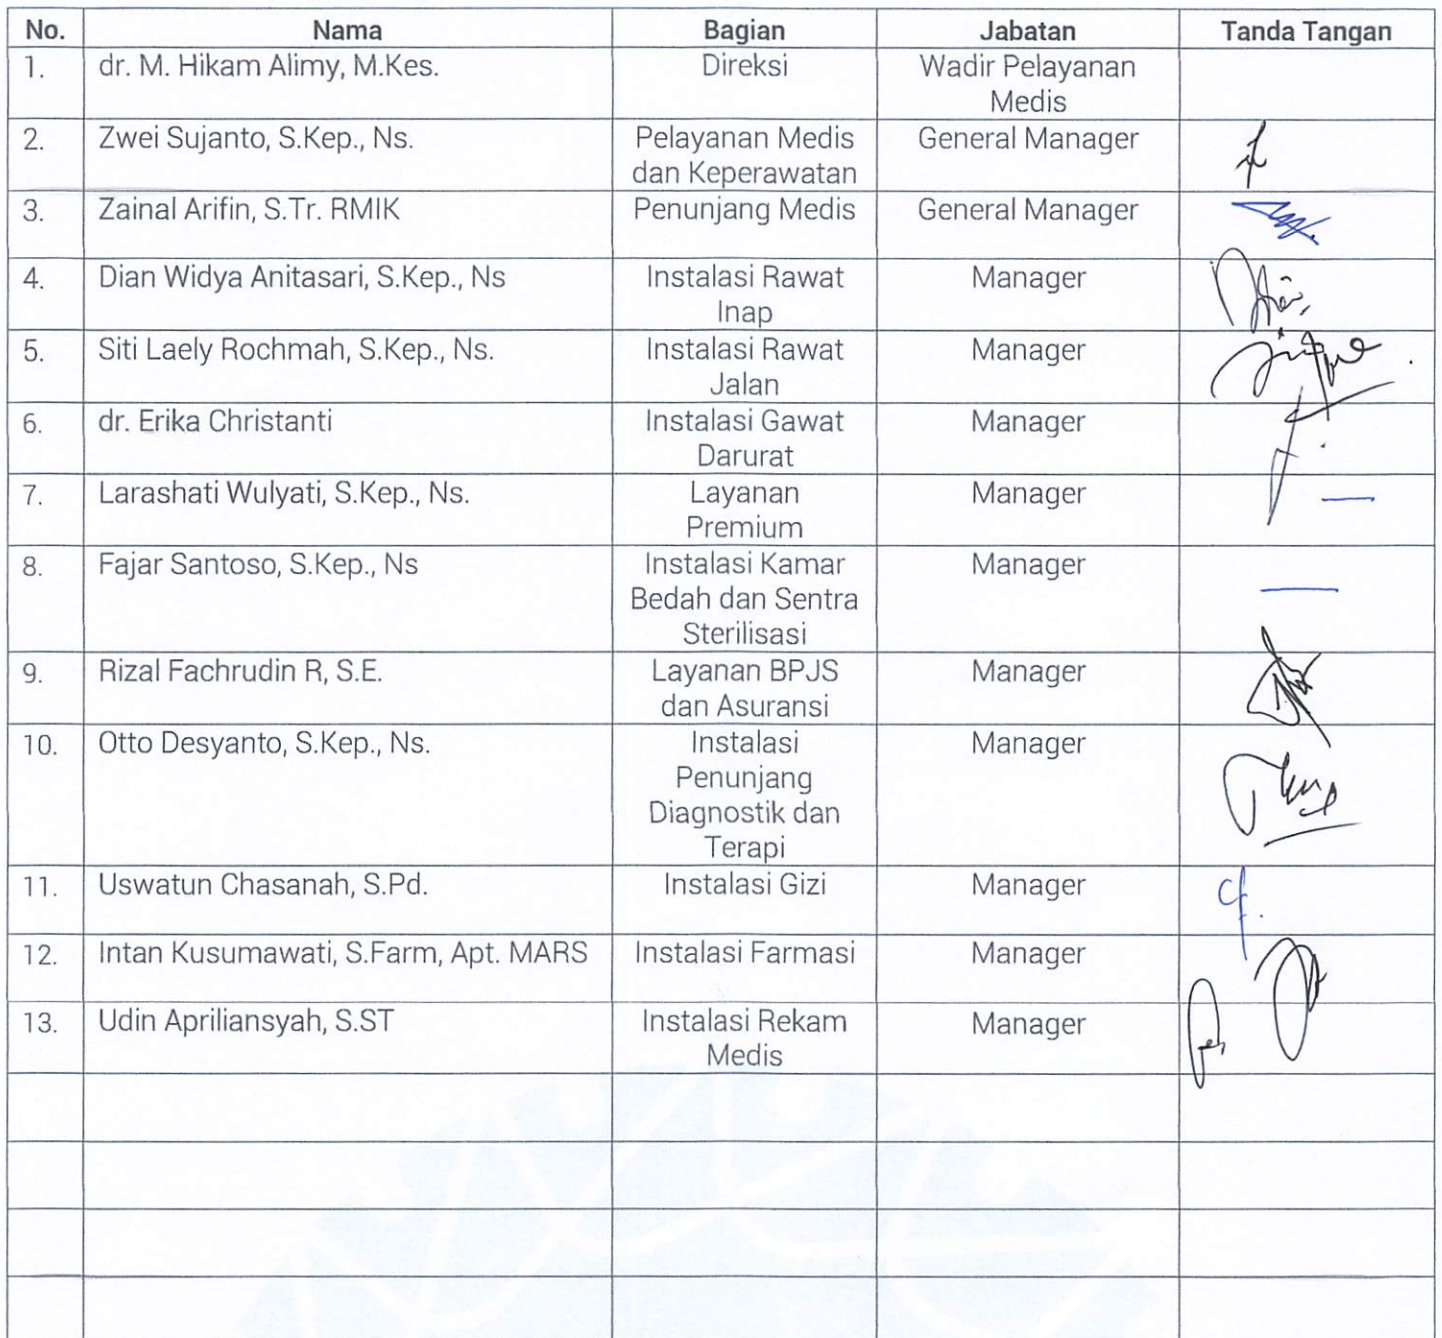 No. Nama Bagian Jabatan Tanda Tangan
1. dr. M. Hikam Alimy, M.Kes. Direksi Wadir Pelayanan
Medis
2. Zwei Sujanto, S.Kep., Ns. Pelayanan Medis General Manager
dan Keperawatan
3. Zainal Arifin, S.Tr. RMIK Penunjang Medis General Manager
4. Dian Widya Anitasari, S.Kep., Ns Instalasi Rawat Manager
Inap
5. Siti Laely Rochmah, S.Kep., Ns. Instalasi Rawat Manager
Jalan
6. dr. Erika Christanti Instalasi Gawat Manager
Darurat
7. Larashati Wulyati, S.Kep., Ns. Layanan Manager
Premium
8. Fajar Santoso, S.Kep., Ns Instalasi Kamar Manager
Bedah dan Sentra
Sterilisasi
9. Rizal Fachrudin R, S.E. Layanan BPJS Manager
dan Asuransi
10. Otto Desyanto, S.Kep., Ns. Instalasi Manager
Penunjang
Diagnostik dan
Terapi
11. Uswatun Chasanah, S.Pd. Instalasi Gizi Manager
12. Intan Kusumawati, S.Farm, Apt. MARS Instalasi Farmasi Manager
13. Udin Apriliansyah, S.ST Instalasi Rekam Manager
Medis